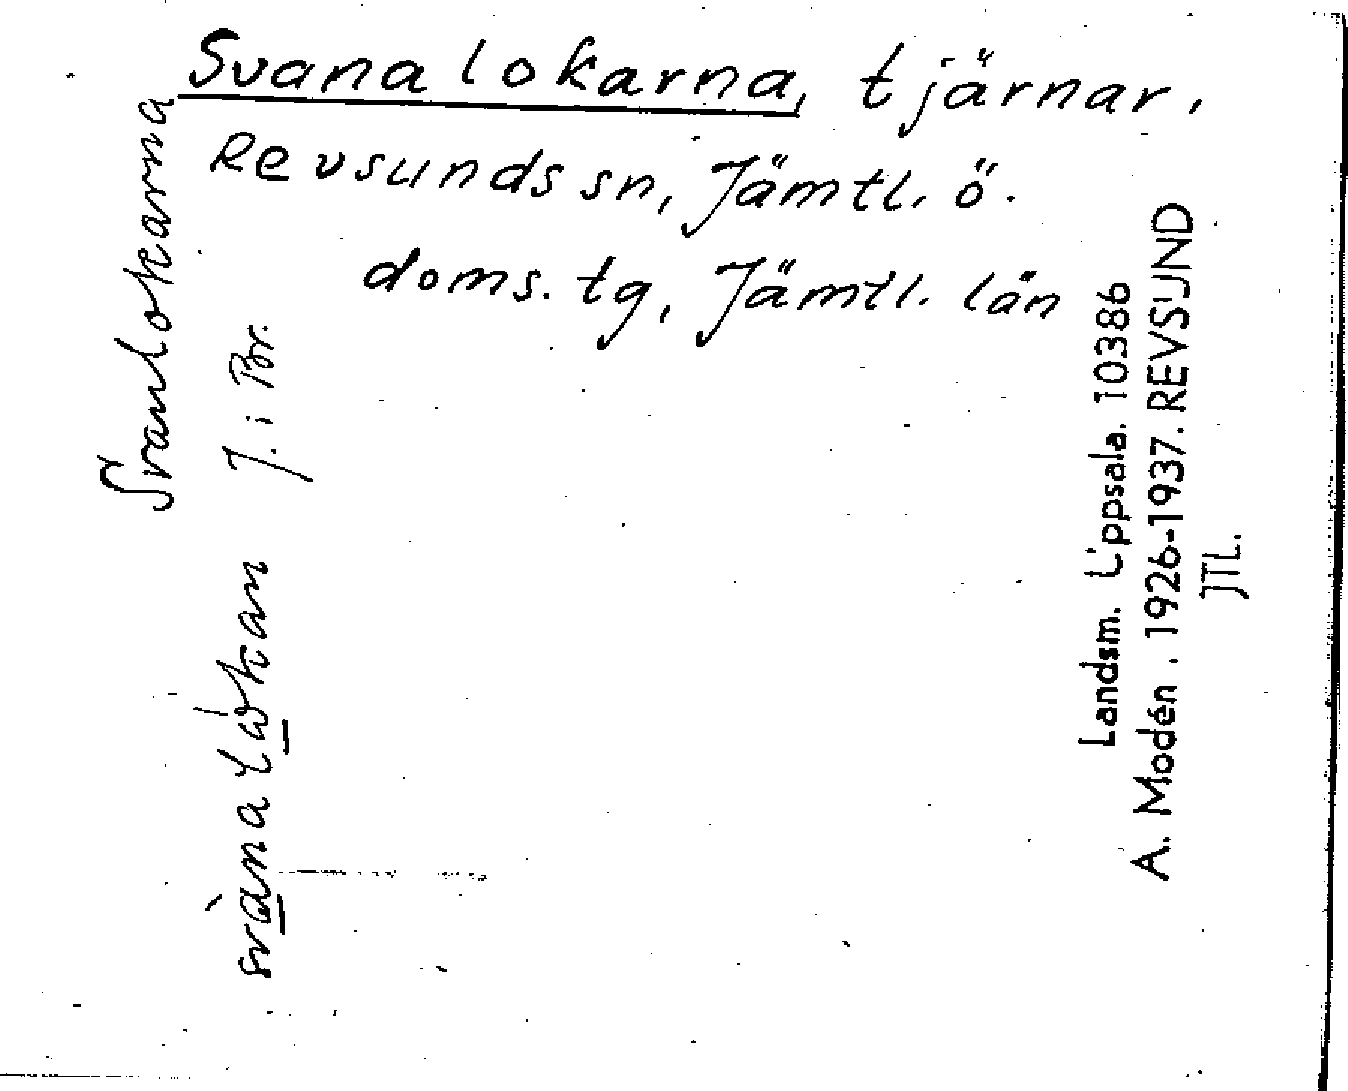 Svanalokarna, tjärnar,
Revsunds sn, Jämtl. ö.
doms. tg, Jämtl. län
Svanlokarna
svànalókan J. i Br.
Landsm. Uppsala. 10386
A. Modén. 1926-1937. REVSUND
JTL.